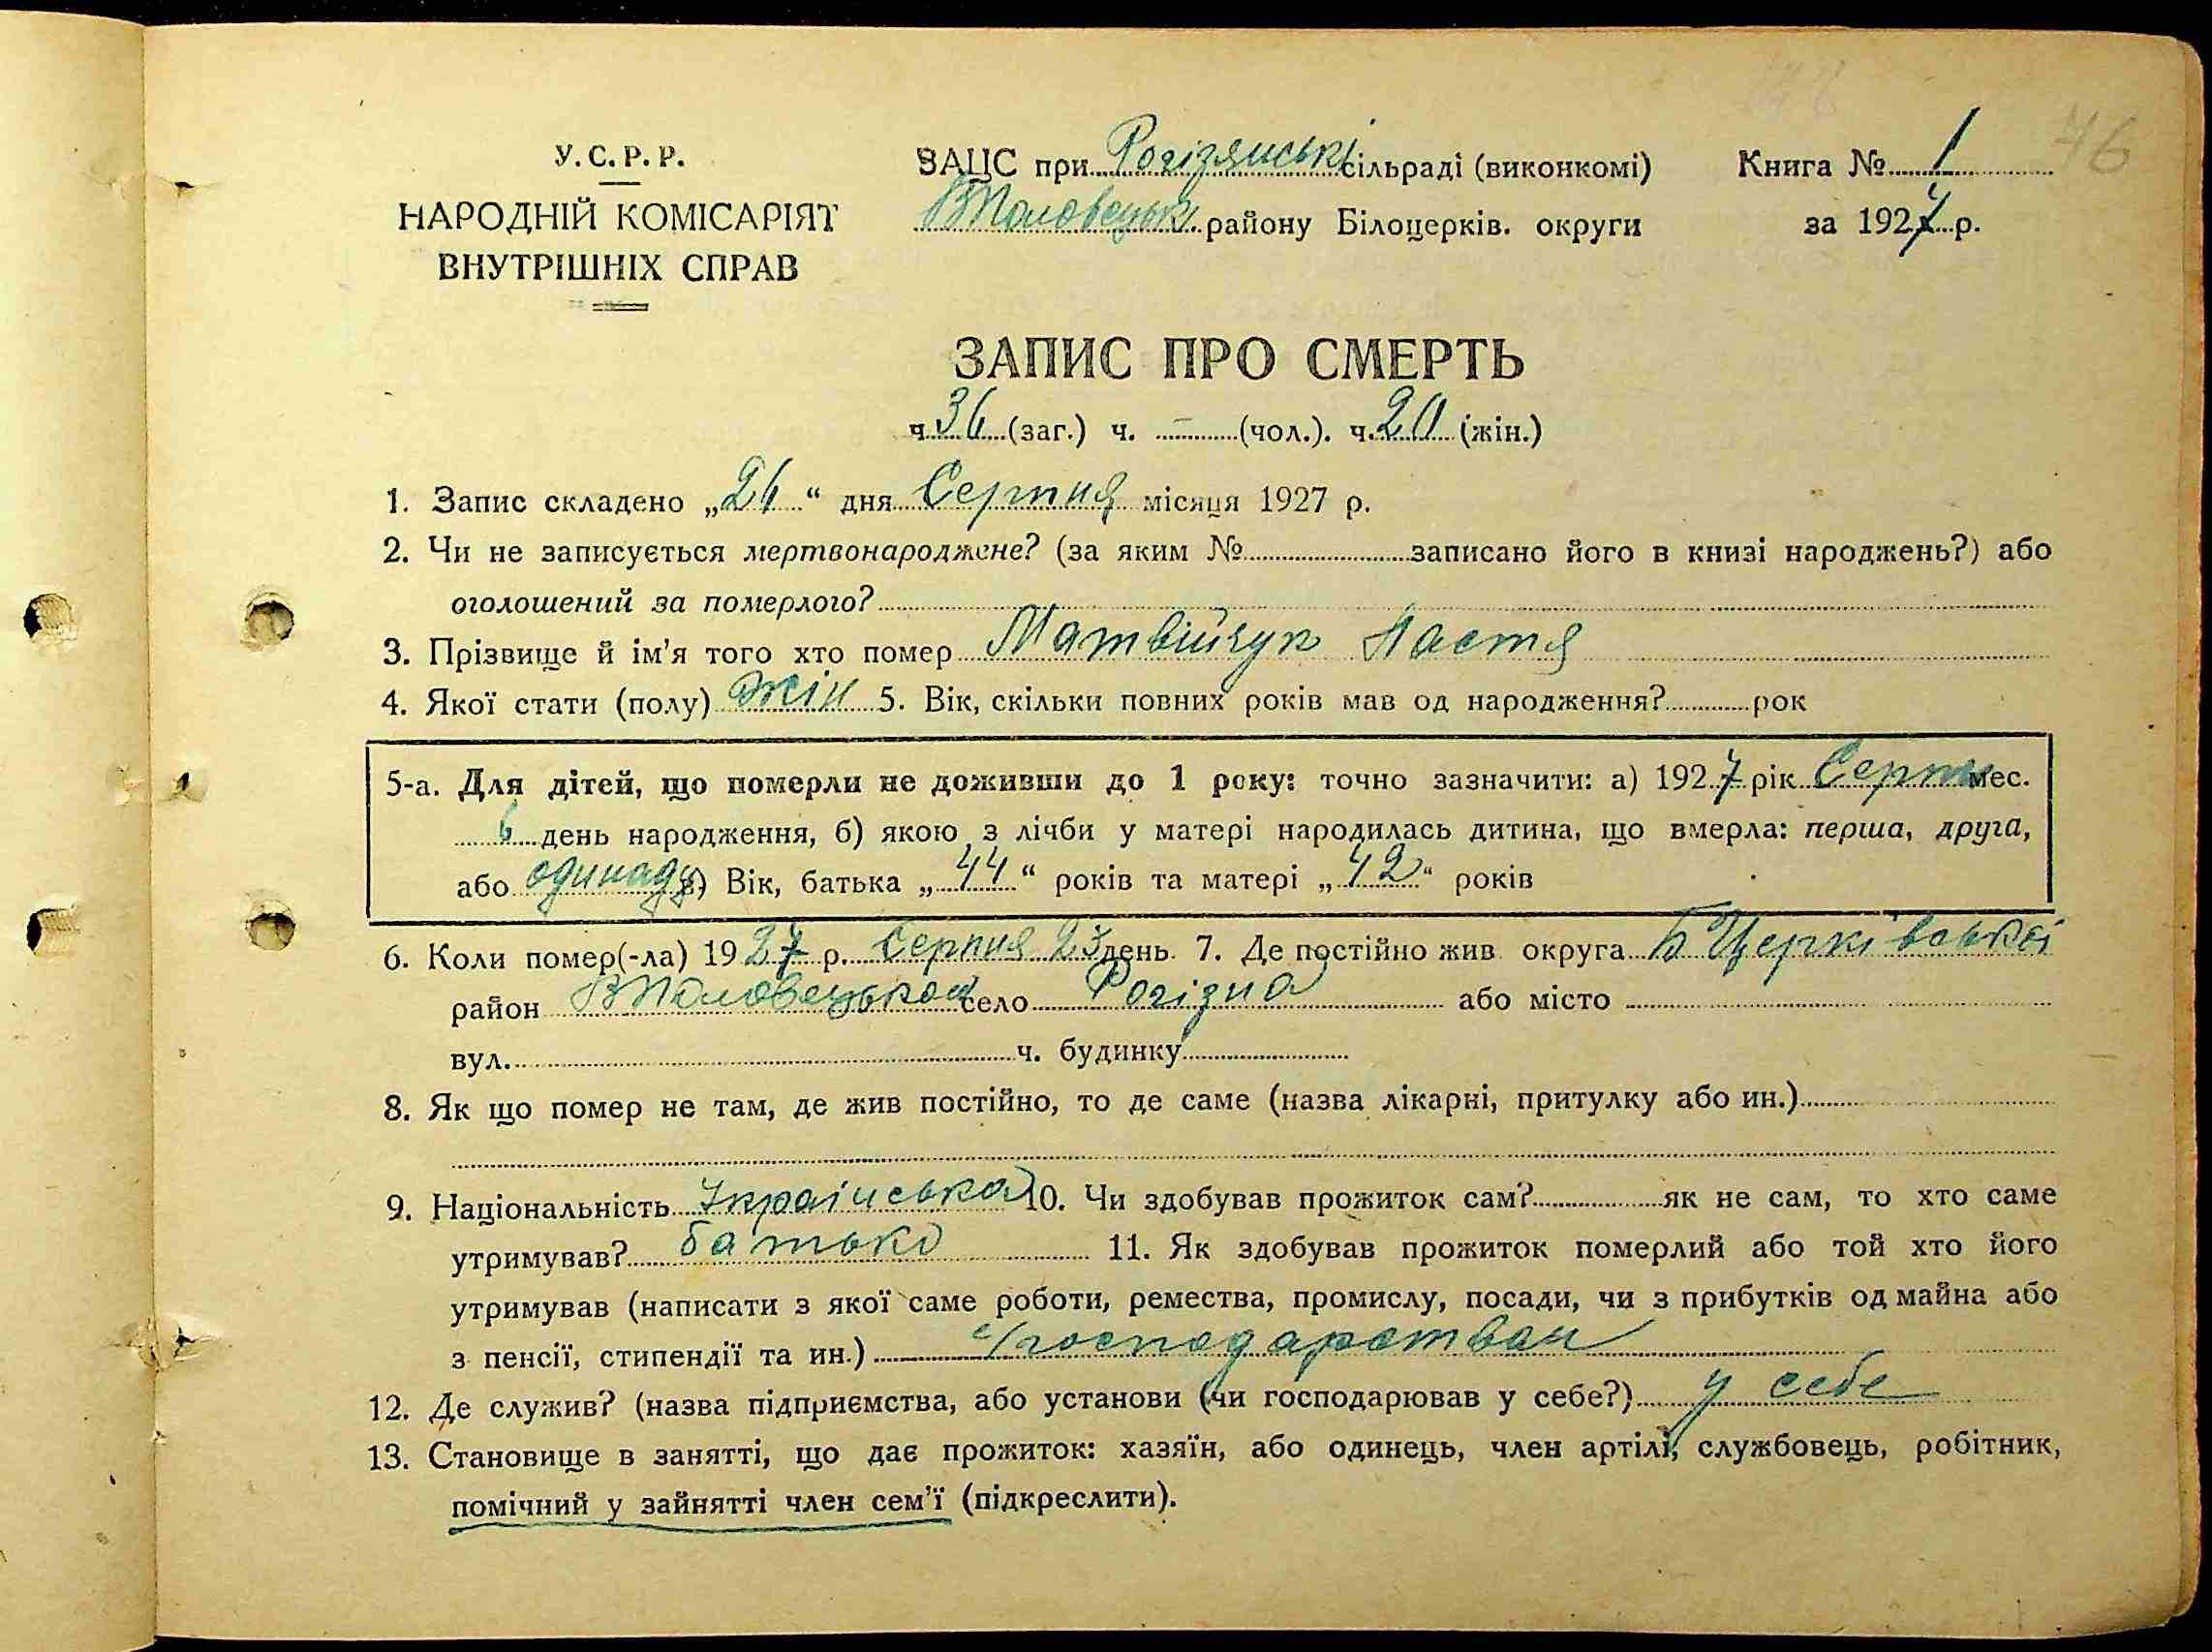 76
У. С. Р. Р.
ЗАЦС при Рогізянські сільраді (виконкомі)
Книга № 1
НАРОДНІЙ КОМІСАРІЯТ
ВПоловецьк. району Білоцерків. округи
за 1927 р.
ВНУТРІШНІХ СПРАВ
ЗАПИС ПРО СМЕРТЬ
ч. 36 (заг.) ч. – (чол.). ч. 20 (жін.)
1. Запис складено „26“ дня Серпня місяця 1927 р.
2. Чи не записується мертвонароджене? (за яким № записано його в книзі народжень?) або
оголошений за померлого?
3. Прізвище й ім'я того хто помер Матвійчук Настя
4. Якої стати (полу) жін 5. Вік, скільки повних років мав од народження? рок
5-а. Для дітей, що померли не доживши до 1 року: точно зазначити: а) 1927 рік Серпн мес.
6 день народження, б) якою з лічби у матері народилась дитина, що вмерла: перша, друга,
або одинадц в) Вік, батька „44“ років та матері „42“ років
6. Коли помер(-ла) 1927 р. Серпня 23 день 7. Де постійно жив округа БЦерківської
район ВПоловецькой село Рогізна або місто
вул. ч. будинку
8. Як що помер не там, де жив постійно, то де саме (назва лікарні, притулку або ин.)
9. Національність Українська 10. Чи здобував прожиток сам? як не сам, то хто саме
утримував? батько 11. Як здобував прожиток померлий або той хто його
утримував (написати з якої саме роботи, ремества, промислу, посади, чи з прибутків од майна або
з пенсії, стипендії та ин.)
12. Де служив? (назва підприємства, або установи (чи господарював у себе?) у себе
13. Становище в занятті, що дає прожиток: хазяїн, або одинець, член артілі, службовець, робітник,
помічний у зайнятті член сем'ї (підкреслити).